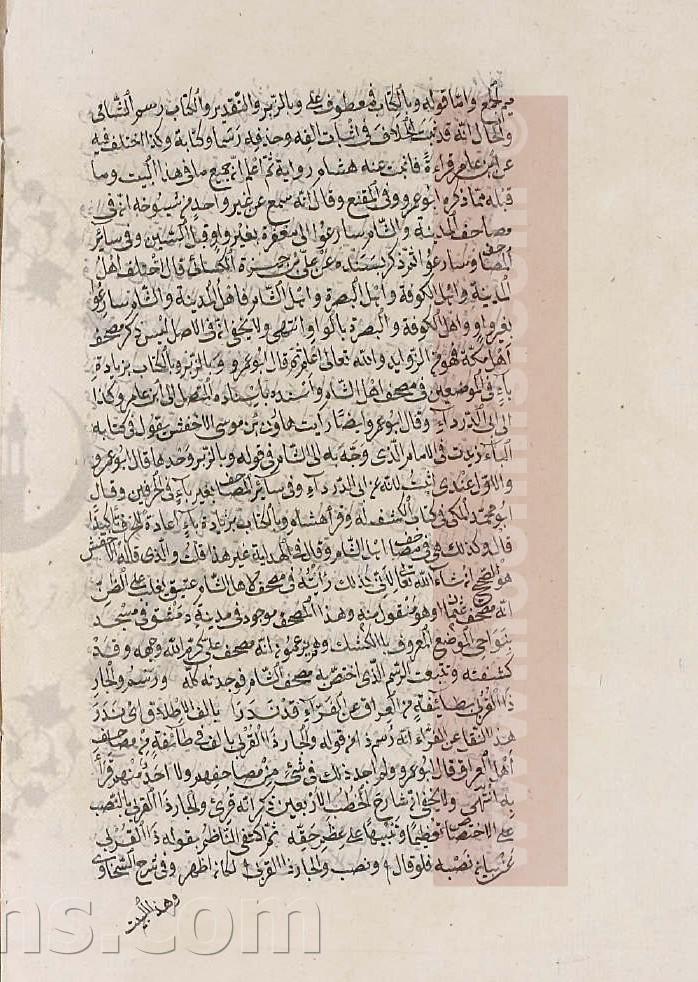 فيه الجمع واما قوله وبالكتاب فمعطوف على وبالزبر والتقدير والكتاب رسم الشامى
والحال انه قد ثبت الخلاف فى اثبات الفه وحذفه رسما وكتابة وكذا اختلف فيه
عن ابن عامر قراءة فاثبت عنه هشام رواية ثم اعلم ان جميع ما فى هذا البيت وما
قبله مما ذكره ابو عمرو فى المقنع وقال انه سمع عن غير واحد من شيوخه ان فى
مصاحف المدينة والشام سارعوا الى مغفرة بغير واو قبل السين وفى سائر
المصاحف وسارعوا ثم ذكر بسنده عن على بن حمزة الكسائى قال اختلف اهل
المدينة واهل الكوفة واهل البصرة واهل الشام فاهل المدينة والشام سارعوا
بغير واو واهل الكوفة والبصرة بالواو انتهى ولا يخفى ان فى الاصل ليس ذكر مصحف
اهل مكة فهو من الزوايد والله تعالى اعلم ثم قال ابو عمرو وبالزبر وبالكتاب بزيادة
باء فى الموضعين فى مصحف اهل الشام واسنده باسناده المتصل الى ابن عامر وكذا
الى ابى الدرداء وقال ابو عمرو ايضا رايت هارون بن موسى الاخفش يقول فى كتابه
الباء زيدت فى الامام الذى وجه به الى الشام فى قوله وبالزبر وحدها قال ابو عمرو
والاول عندى اثبت لانه عن ابى الدرداء وفى سائر المصاحف بغير باء فى الحرفين وقال
ابو محمد المكى فى كتاب الكشف له وقرأ هشام وبالكتاب بزيادة باء اعادة للحرف تاكيدا
قال وكذلك هو فى مصاحف اهل الشام وقال فى الهداية غير هذا قلت والذى قاله الاخفش
هو الصحيح ان شاء الله تعالى لانى كذلك رأيته فى مصحف لاهل الشام عتيق يغلب على الظن
انه مصحف عثمان او هو منقول منه وهذا المصحف موجود فى مدينة دمشق فى مسجد
بنواحى الموضع المعروف بالكشك وهم يزعمون انه مصحف على كرم الله وجهه وقد
كشفته وتتبعت الرسم الذى اختص به مصحف الشام فوجدته كله ورسم والجار
ذا القربى بطائفة من العراق عن الفراء قد ندرا بالف الاطلاق اى ندر
هذا النقل عن الفراء انه رسم ذا من قوله والجار ذا القربى بالف فى طائفة من مصاحف
اهل العراق قال ابو عمرو ولم اجد ذلك فى شئ من مصاحفهم ولا احد منهم قرأ
به انتهى ولا يخفى ان شارح الخطب الاربعين ذكر انه قرئ والجار ذا القربى بالنصب
على الاختصاص تعظيما وتنبيها على عظم حقه ثم اكتفى الناظم بقوله ذا القربى
عن بيان نصبه فلو قال ونصب والجار ذا القربى لكان اظهر وفى شرح السخاوى
وهذا البيت